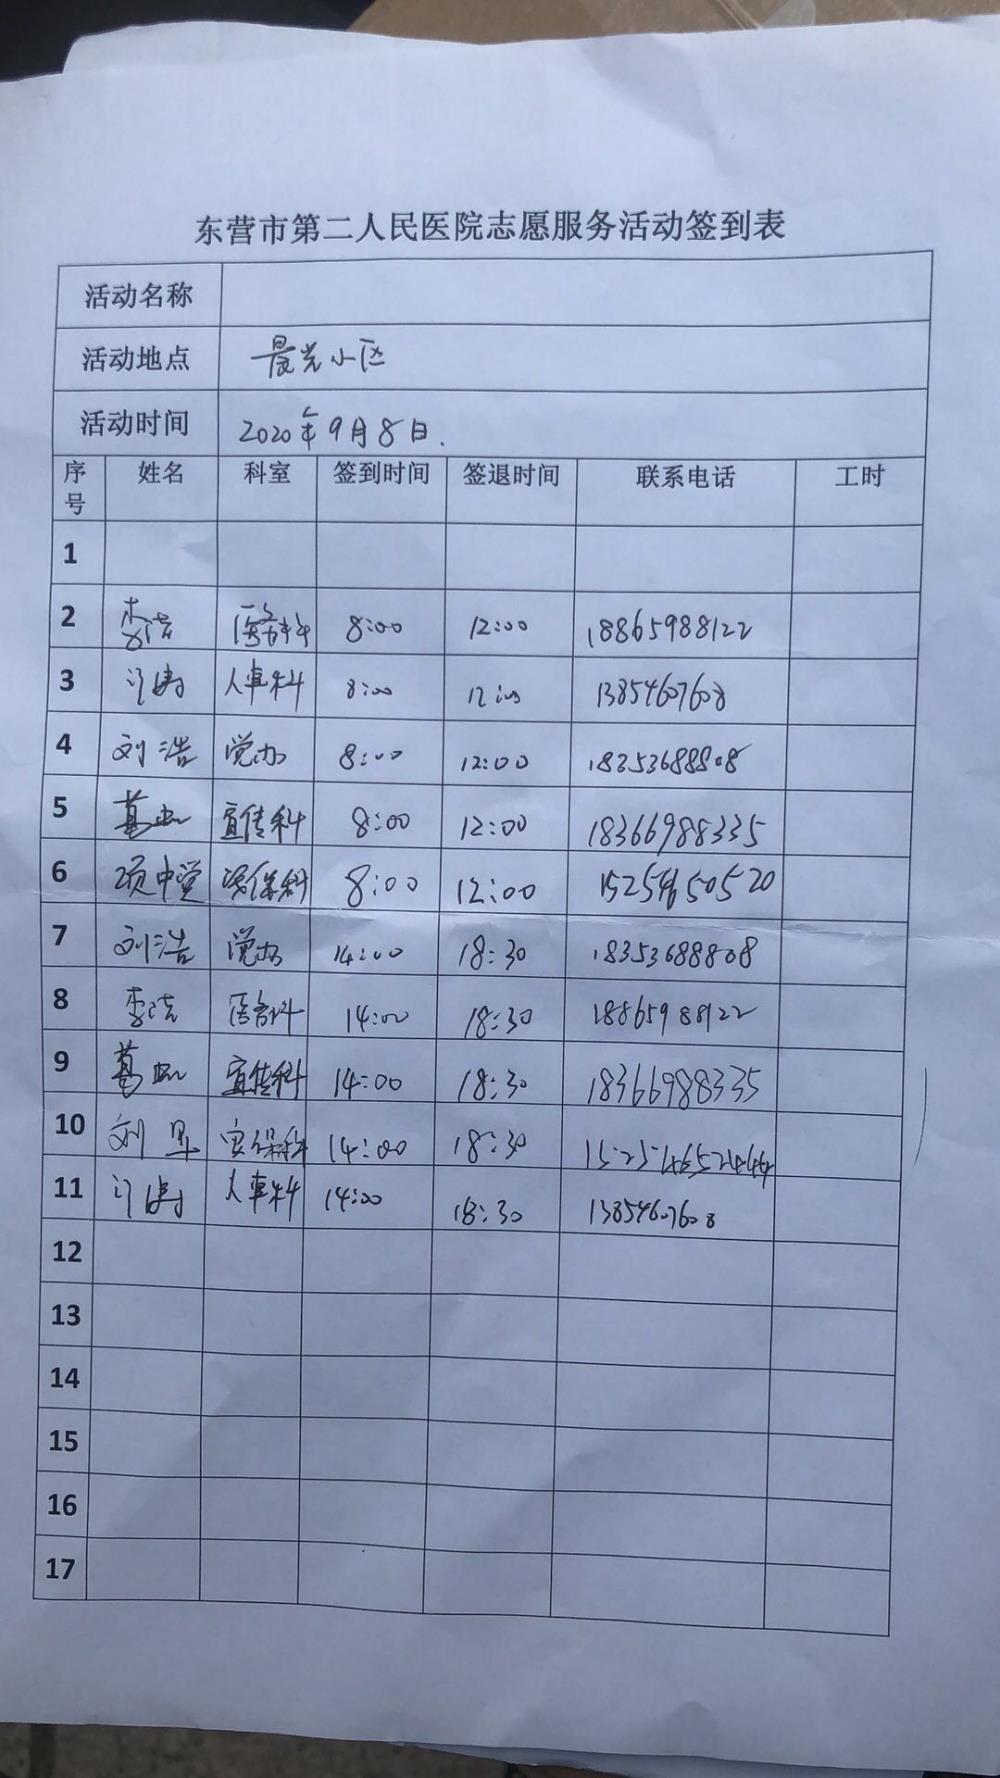 东营市第二人民医院志愿服务活动签到表
活动名称
活动地点 晨光小区
活动时间 2020年9月8日.
序号 姓名 科室 签到时间 签退时间 联系电话 工时
1
2 李浩 医务科 8:00 12:00 18865988122
3 许涛 人事科 8:00 12:00 13854607608
4 刘浩 党办 8:00 12:00 18353688808
5 葛 宣传科 8:00 12:00 18366988335
6 项中堂 医保科 8:00 12:00 15254650520
7 刘浩 党办 14:00 18:30 18353688808
8 李浩 医务科 14:00 18:30 18865988122
9 葛 宣传科 14:00 18:30 18366988335
10 刘 安保科 14:00 18:30
11 许涛 人事科 14:00 18:30 13854607608
12
13
14
15
16
17